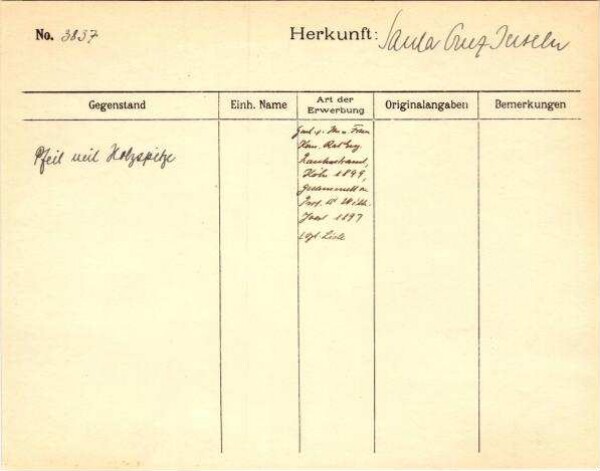 No. 3837
Herkunft: Santa Cruz Inseln
Gegenstand
Einh. Name
Art der
Erwerbung
Originalangaben
Bemerkungen
Pfeil mit Holzspitze
Frau
Rautenstrauch,
Köln 1899,
gesammelt v.
Prof. Dr Wilh.
Joest 1897
vgl. Liste